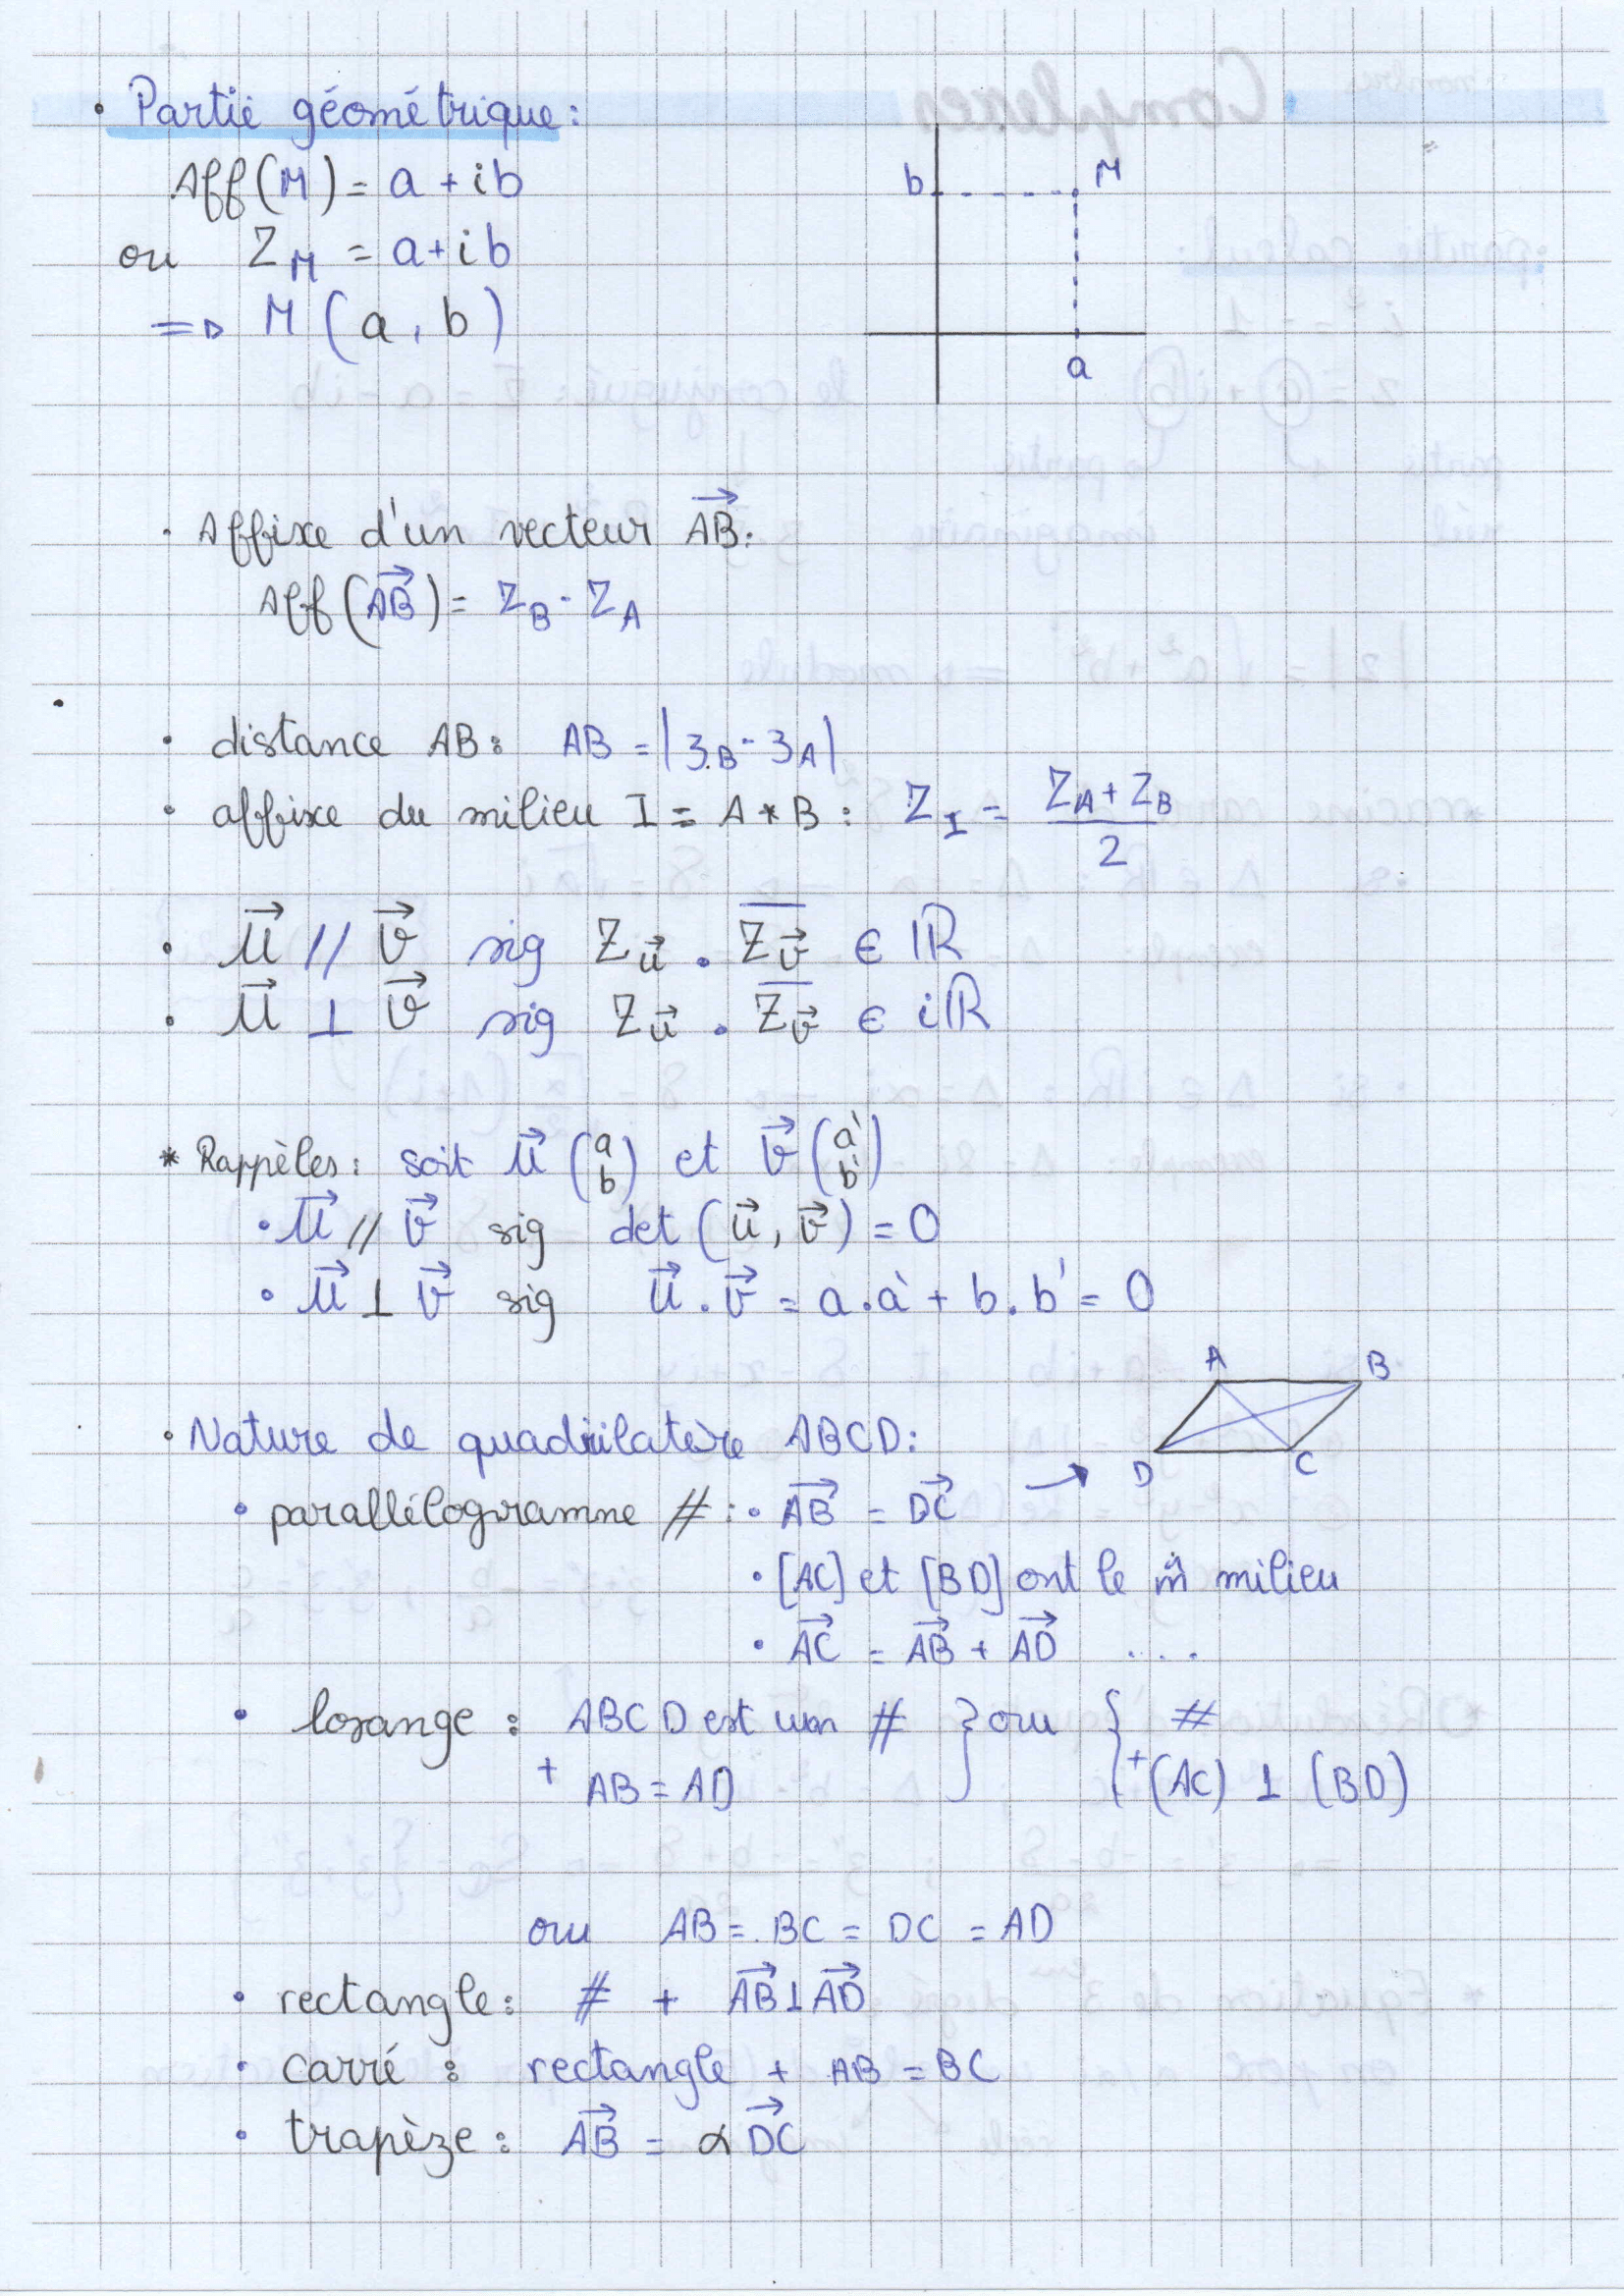 • Partie géométrique:
Aff(M) = a + ib
ou Z_M = a + ib
=> M(a, b)
b M
a
• Affixe d'un vecteur \vec{AB}:
Aff(\vec{AB}) = Z_B - Z_A
• distance AB: AB = |z_B - z_A|
• affixe du milieu I = A * B : Z_I = \frac{Z_A + Z_B}{2}
• \vec{u} // \vec{v} sig Z_{\vec{u}} . \overline{Z_{\vec{v}}} ∈ IR
• \vec{u} ⊥ \vec{v} sig Z_{\vec{u}} . \overline{Z_{\vec{v}}} ∈ iIR
* Rappèles: soit \vec{u} \binom{a}{b} et \vec{v} \binom{a'}{b'}
• \vec{u} // \vec{v} sig det(\vec{u}, \vec{v}) = 0
• \vec{u} ⊥ \vec{v} sig \vec{u} . \vec{v} = a.a' + b.b' = 0
A B
D C
• Nature de quadrilatère ABCD:
• parallélogramne # : • \vec{AB} = \vec{DC} →
• [AC] et [BD] ont le m̂ milieu
• \vec{AC} = \vec{AB} + \vec{AD} ....
• losange : ABCD est un # } ou { #
+ AB = AD + (AC) ⊥ (BD)
ou AB = BC = DC = AD
• rectangle: # + \vec{AB} ⊥ \vec{AD}
• carré : rectangle + AB = BC
• trapèze : \vec{AB} = α \vec{DC}